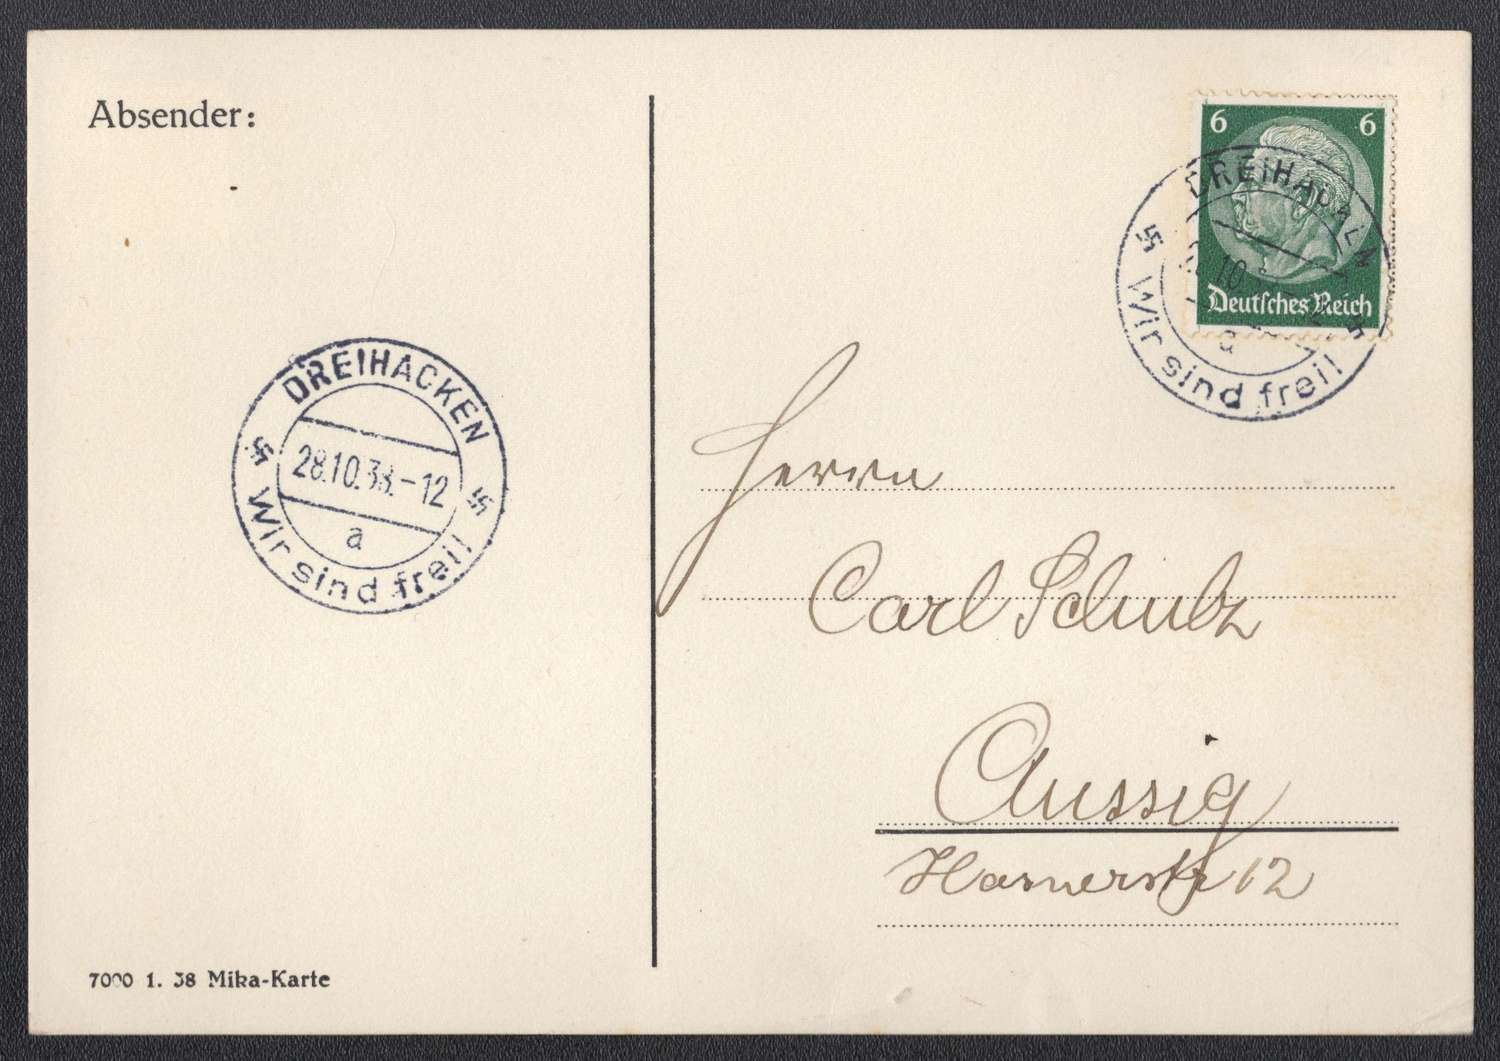 Absender:
6 6
Deutsches Reich
DREIHACKEN
Wir sind frei!
a
DREIHACKEN
28.10.38.-12
a
Wir sind frei!
Herrn
Carl Schulz
Aussig
12
7000 1. 38 Mika-Karte